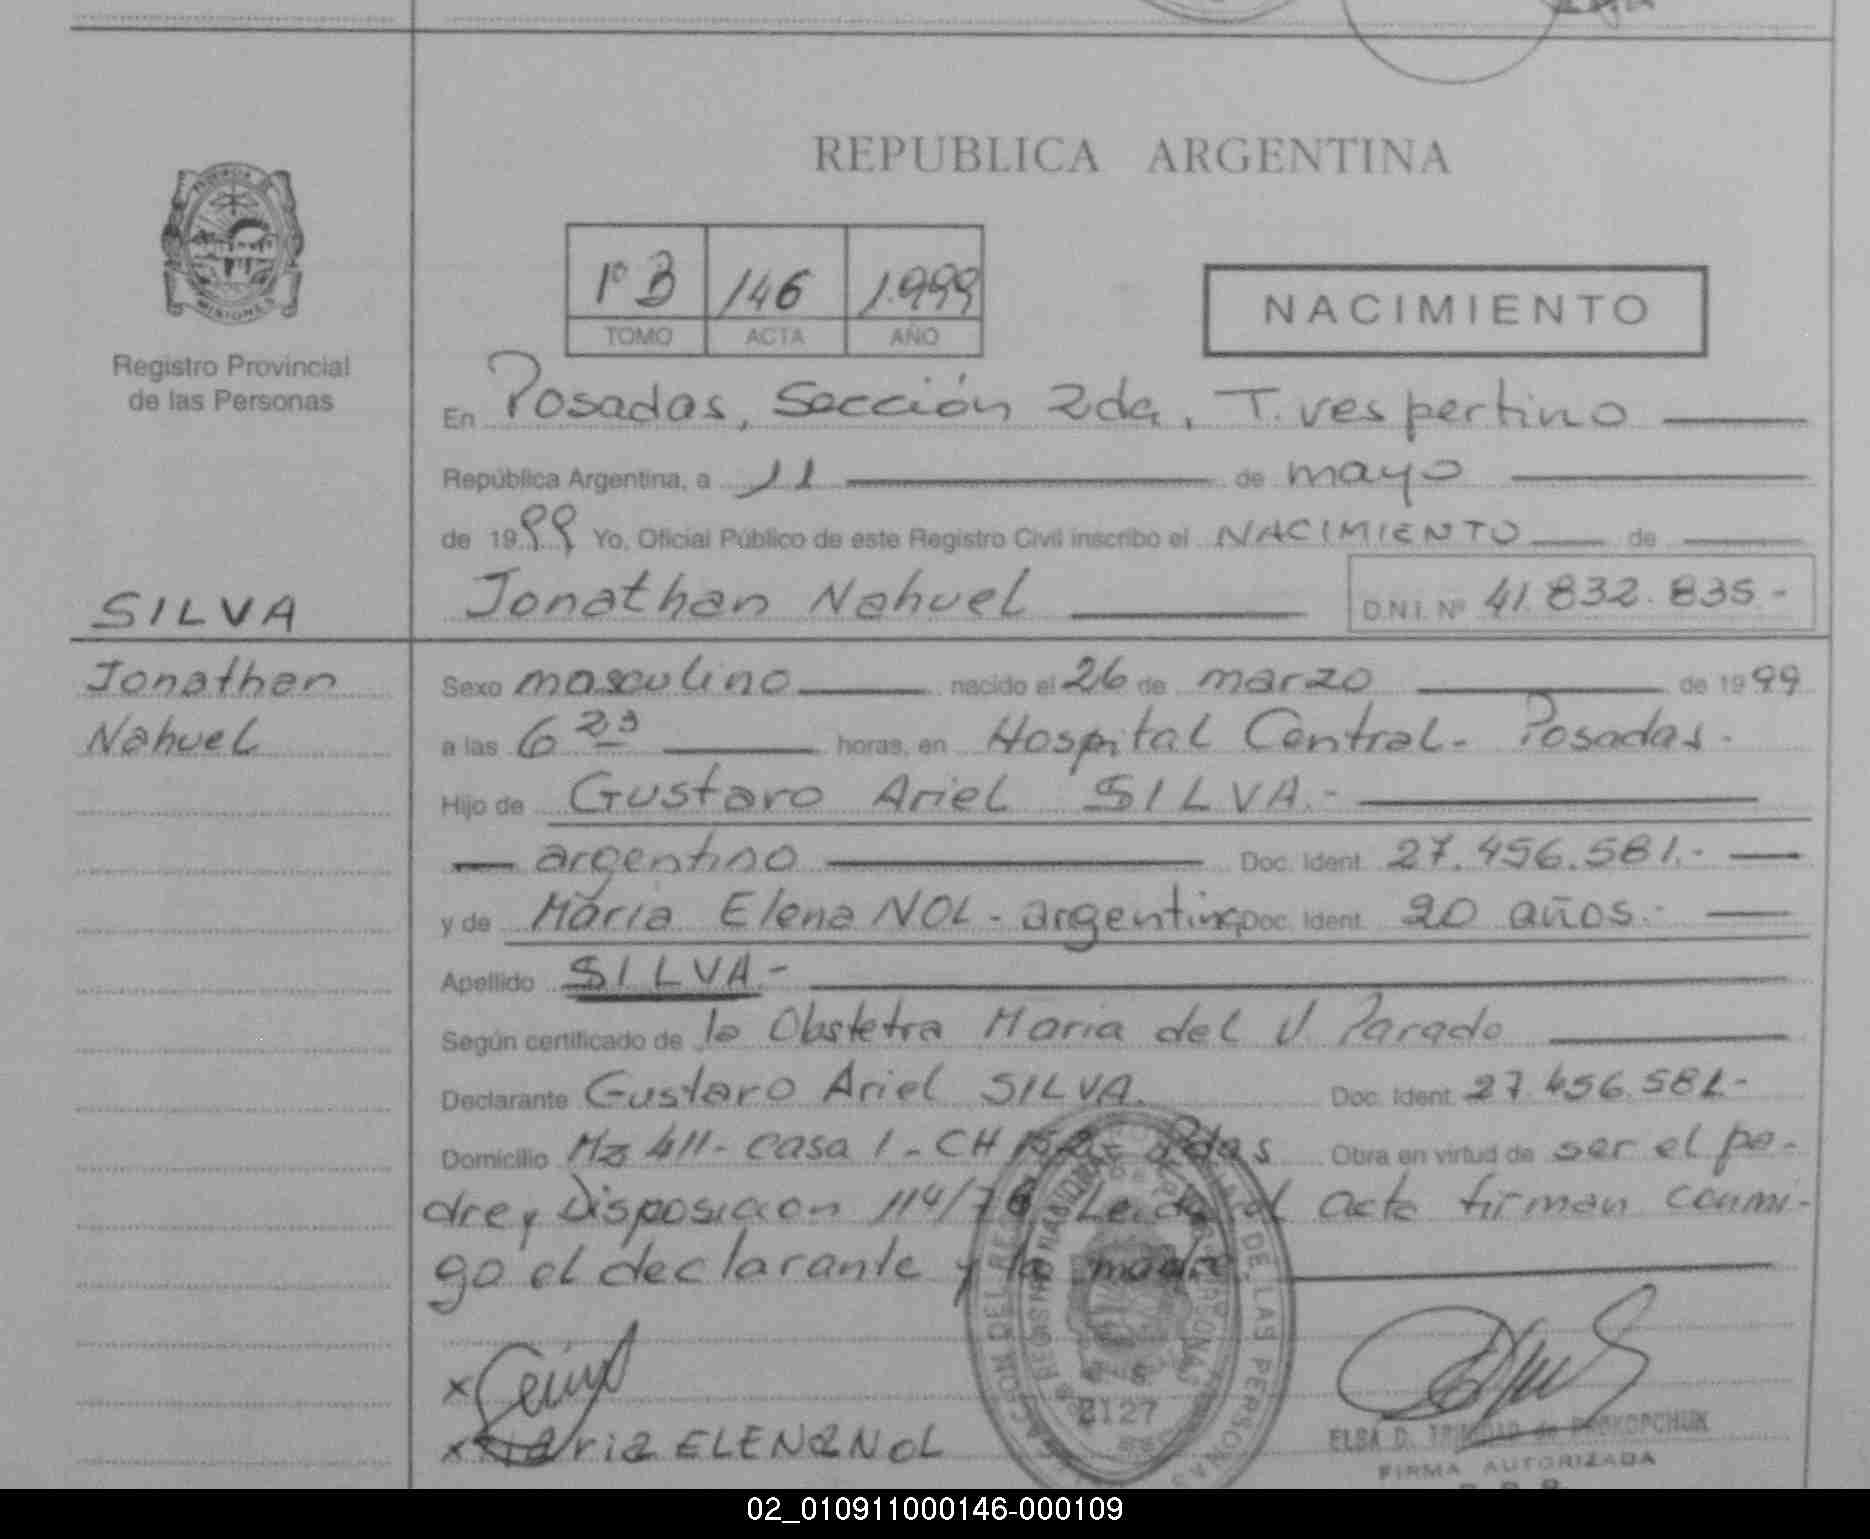 REPUBLICA ARGENTINA
PROVINCIA DE
MISIONES
Registro Provincial
de las Personas
1º B 146 1.999
TOMO ACTA AÑO
NACIMIENTO
En Posadas, Sección 2da, T. vespertino
República Argentina, a 11 de mayo
de 1999 Yo, Oficial Público de este Registro Civil inscribo el NACIMIENTO de
SILVA Jonathan Nahuel D.N.I. Nº 41.832.835.-
Jonathan Sexo masculino nacido el 26 de marzo de 1999
Nahuel a las 6 23 horas, en Hospital Central. Posadas.
Hijo de Gustavo Ariel SILVA.-
argentino Doc. Ident. 27.456.581.-
y de María Elena NOL - argentina Doc. Ident. 20 años.-
Apellido SILVA.-
Según certificado de la Obstetra Maria del Parado
Declarante Gustavo Ariel SILVA. Doc. Ident. 27.456.581.-
Domicilio Mz 411 - casa 1 - CH Pdas Obra en virtud de ser el pa-
dre y Disposicion 114/76 Leida el acta firman conmi-
go el declarante y la madre.
x
x Maria ELENA NOL
2127
DE LAS PERSONAS
ELSA D. TRINIDAD de PROKOPCHUK
FIRMA AUTORIZADA
02_010911000146-000109